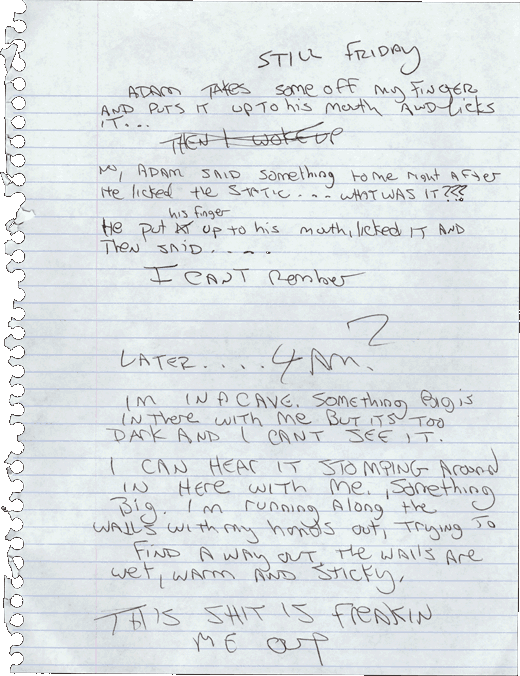 STILL FRIDAY
ADAM TAKES some off my FINGER
AND PUTS IT up to his mouth AND licks
IT...
THEN I WOKE UP
NO, ADAM SAID something to me right AFTER
He licked the STATIC... WHAT WAS IT???
his finger
He put it up to his mouth, licked IT AND
Then SAID.....
I CANT Rember
LATER.... 4 AM. ?
IM IN A CAVE. Something Big is
IN There with me BUT ITS TOO
DARK AND I CANT SEE IT.
I CAN HEAR IT STOMPING Around
IN HERE WITH ME. Something
Big. I'm running Along the
WALLS with my hands out, Trying To
FIND A WAY OUT. The WALLS ARE
wet, WARM AND STICKY.
THIS SHIT IS FREAKIN
ME OUT